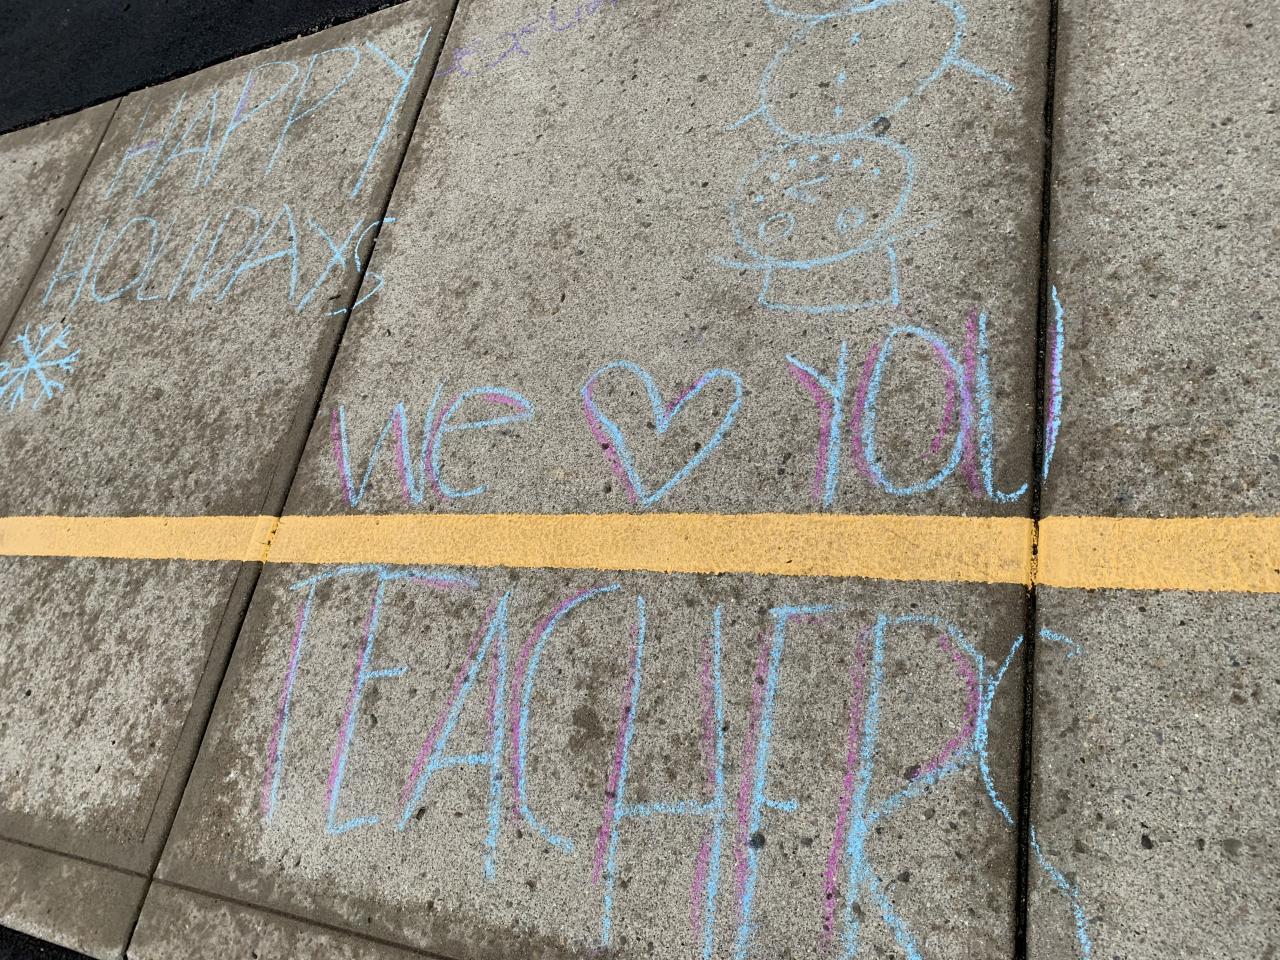 HAPPY
HOLIDAYS
We ♡ YOU
TEACHERS